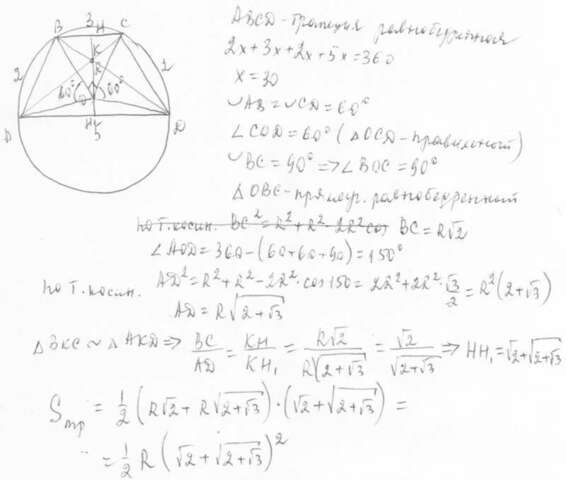 B 3 H C
K
R
2 60° O 60° 2
D H₁ D
5
ABCD - трапеция равнобедренная
2x + 3x + 2x + 5x = 360
x = 30
◡AB = ◡CD = 60°
∠COD = 60° (△OCD - правильный)
◡BC = 90° ⇒ ∠BOC = 90°
△OBC - прямоуг. равнобедренный
по т. косин. BC² = R² + R² - 2R² cos BC = R√2
∠AOD = 360 - (60+60+90) = 150°
по т. косин. AD² = R² + R² - 2R² · cos 150 = 2R² + 2R² · √3/2 = R²(2+√3)
AD = R√(2+√3)
△BKC ~ △AKD ⇒ BC/AD = KH/KH₁ = R√2/(R√(2+√3)) = √2/√(2+√3) ⇒ HH₁ = √2+√(2+√3)
Sтр = 1/2 (R√2 + R√(2+√3)) · (√2 + √(2+√3)) =
= 1/2 R (√2 + √(2+√3))²